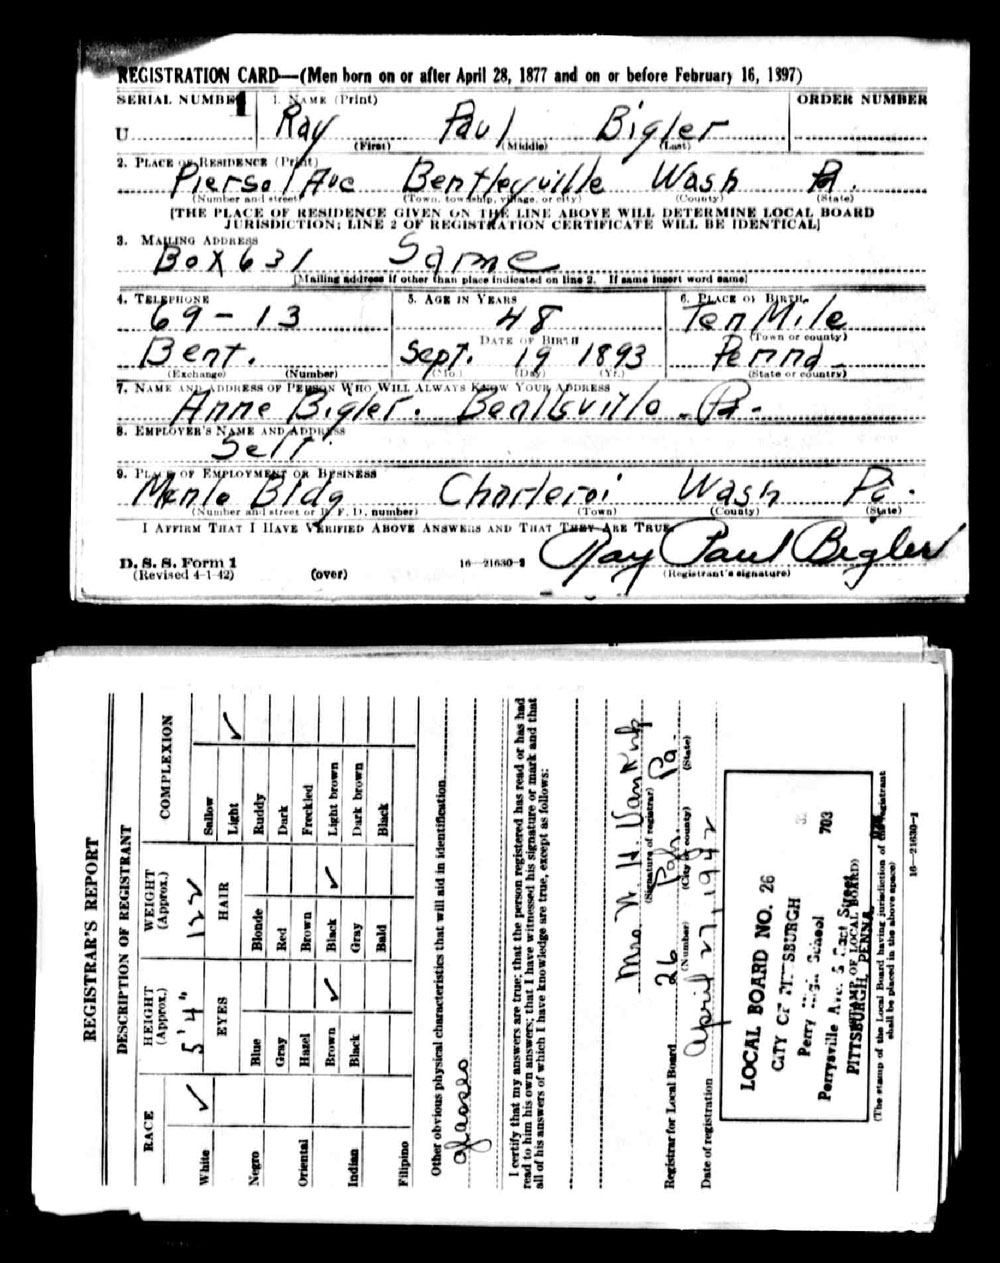 REGISTRATION CARD—(Men born on or after April 28, 1877 and on or before February 16, 1897)
SERIAL NUMBER 1. NAME (Print) ORDER NUMBER
U Ray Paul Bigler
(First) (Middle) (Last)
2. PLACE OF RESIDENCE (Print)
Piersol Ave Bentleyville Wash Pa.
(Number and street) (Town, township, village, or city) (County) (State)
[THE PLACE OF RESIDENCE GIVEN ON THE LINE ABOVE WILL DETERMINE LOCAL BOARD
JURISDICTION; LINE 2 OF REGISTRATION CERTIFICATE WILL BE IDENTICAL]
3. MAILING ADDRESS
Box 631 Same
[Mailing address if other than place indicated on line 2. If same insert word same]
4. TELEPHONE 5. AGE IN YEARS 6. PLACE OF BIRTH
69-13 48 Ten Mile
DATE OF BIRTH (Town or county)
Bent. Sept. 19 1893 Penna
(Exchange) (Number) (Mo.) (Day) (Yr.) (State or country)
7. NAME AND ADDRESS OF PERSON WHO WILL ALWAYS KNOW YOUR ADDRESS
Anne Bigler. Pa.
8. EMPLOYER'S NAME AND ADDRESS
Self
9. PLACE OF EMPLOYMENT OR BUSINESS
Bldg Charleroi Wash Pa.
(Number and street or R. F. D. number) (Town) (County) (State)
I AFFIRM THAT I HAVE VERIFIED ABOVE ANSWERS AND THAT THEY ARE TRUE.
Ray Paul Bigler
D. S. S. Form 1
(Revised 4-1-42) (over) 16—21630-2 (Registrant's signature)
REGISTRAR'S REPORT
DESCRIPTION OF REGISTRANT
RACE HEIGHT (Approx.) WEIGHT (Approx.) COMPLEXION
White ✓ 5'4" 122 Sallow
EYES HAIR Light ✓
Negro Blue Blonde Ruddy
Gray Red Dark
Oriental Hazel Brown Freckled
Brown ✓ Black ✓ Light brown
Indian Black Gray Dark brown
Bald Black
Filipino
Other obvious physical characteristics that will aid in identification
glasses
I certify that my answers are true; that the person registered has read or has had
read to him his own answers; that I have witnessed his signature or mark and that
all of his answers of which I have knowledge are true, except as follows:
Mrs.
(Signature of registrar)
Registrar for Local Board 26 Pgh. Pa.
(Number) (City or county) (State)
Date of registration April 27, 1942
LOCAL BOARD NO. 26
CITY OF PITTSBURGH 703
Perry High School
Perrysville Ave.
(STAMP OF LOCAL BOARD)
PITTSBURGH, PENNA.
(The stamp of the Local Board having jurisdiction of the registrant
shall be placed in the above space)
16—21630-1